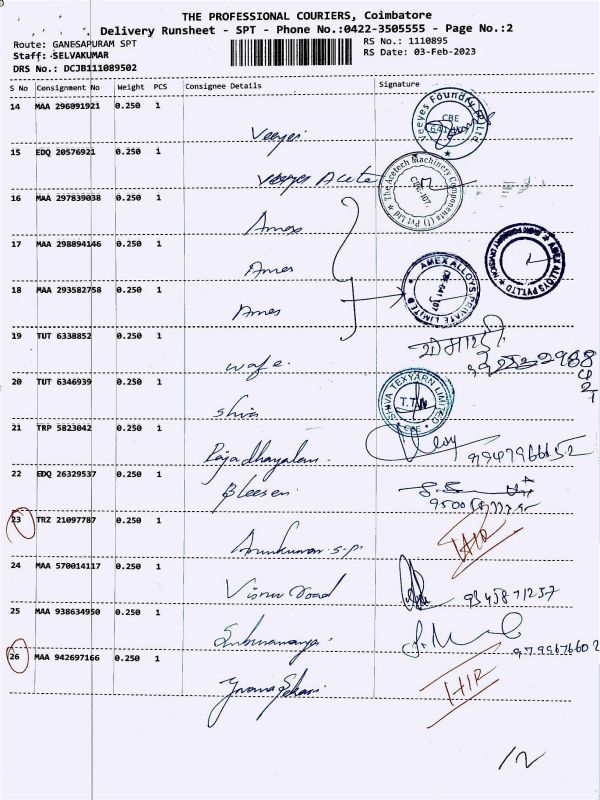 THE PROFESSIONAL COURIERS, Coimbatore
Delivery Runsheet - SPT - Phone No.:0422-3505555 - Page No.:2
Route: GANESAPURAM SPT
RS No.: 1110895
Staff: SELVAKUMAR
RS Date: 03-Feb-2023
DRS No.: DCJB111089502
S No Consignment No Weight PCS Consignee Details Signature
14 MAA 296091921 0.250 1
Veeyes Foundry (P) Ltd
CBE
Veeyes
15 EDQ 20576921 0.250 1
Veeyes Acete
The Acetech Machinery Components (I) Pvt Ltd
CBE-107.
16 MAA 297839038 0.250 1
Ames
17 MAA 298894146 0.250 1
Ames
AMEX ALLOYS PVT LTD
18 MAA 293582758 0.250 1
Ames
AMEX ALLOYS PRIVATE LIMITED
19 TUT 6338852 0.250 1
20 TUT 6346939 0.250 1
Shiva
SHIVA TEXYARN LIMITED
CBE
21 TRP 5823042 0.250 1
Rajadhayalan.
9947966652
22 EDQ 26329537 0.250 1
Bleesen
23 TRZ 21097787 0.250 1
Arunkumar S.P.
H/R
24 MAA 570014117 0.250 1
Viswa road
9345871257
25 MAA 938634950 0.250 1
Submanaya.
9799676602
26 MAA 942697166 0.250 1
H/R
12